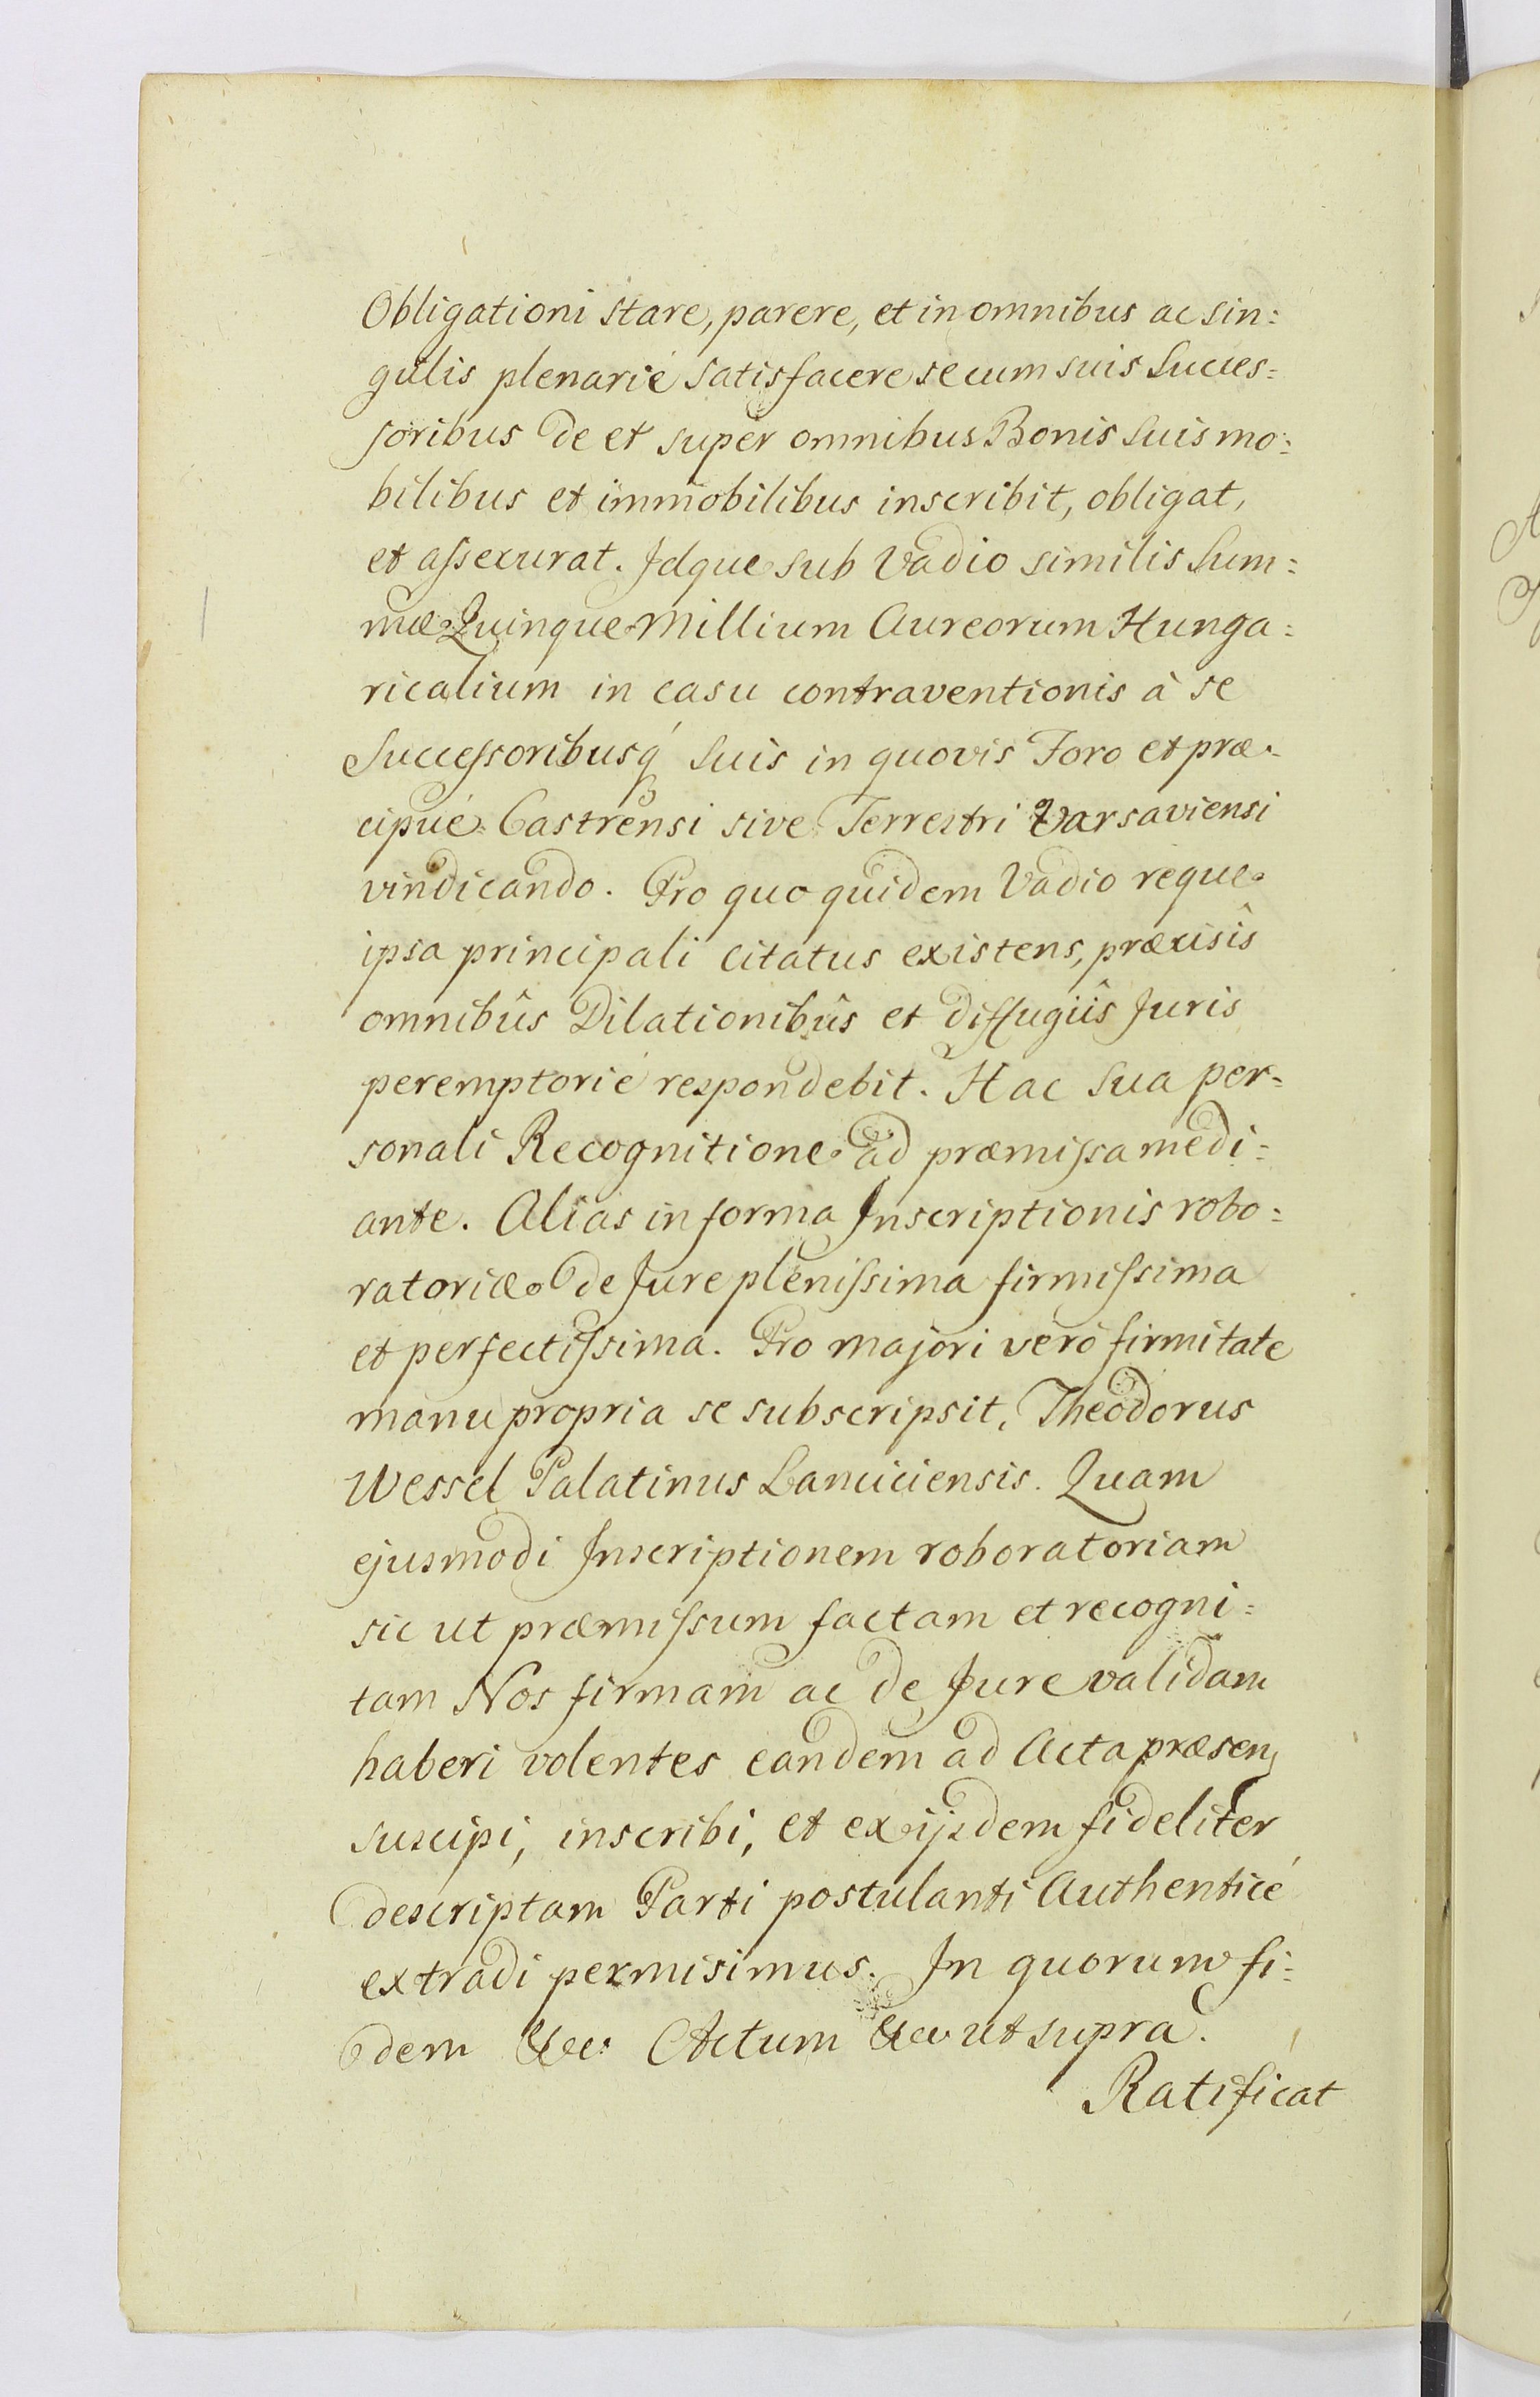 Obligationi stare, parere, et in omnibus ac sin:
gulis plenarié satisfacere se cum suis Succes:
soribus de et super omnibus Bonis suis mo:
bilibus et immobilibus inscribit, obligat,
et assecurat. Idque sub Vadio similis Sum:
mæ Quinque Millium Aureorum Hunga:
ricalium in casu contraventionis à se
Successoribusq́ suis in quovis Foro et præ-
cipué Castrensi sive Terrestri Varsaviensi
vindicando. Pro quo quidem Vadio reque
ipsa principali citatus existens, præcisîs
omnibûs Dilationibûs et diffugiîs Juris
peremptorié respondebit. Hac sua per-
sonali Recognitione ad præmissa medi:
ante. Alias in forma Inscriptionis robo:
ratoriæ de Jure plenissima firmissima
et perfectissima. Pro majori verò firmitate
manu propria se subscripsit, Theodorus
Wessel Palatinus Lanciciensis. Quam
ejusmodi Inscriptionem roboratoriam
sic ut præmissum factam et recogni:
tam Nos firmam ac de Jure validam
haberi volentes eandem ad Acta præsen,
suscipi, inscribi, et ex ijsdem fideliter
descriptam Parti postulanti Authenticé
extradi permisimus. In quorum fi:
dem &c: Actum &c ut supra.
Ratificat